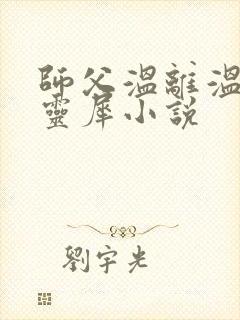 師父溫離溫
靈犀小說
劉宇光